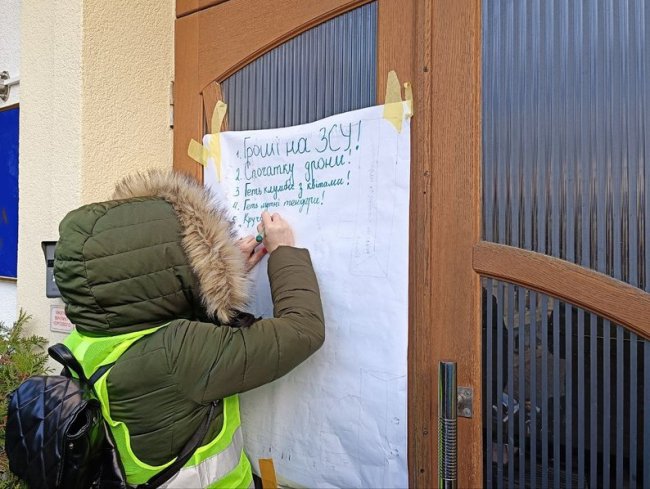 1. Гроші на ЗСУ!
2. Спочатку дрони!
3. Геть клумби з квітами!
4. Геть мутні тендери!
5.